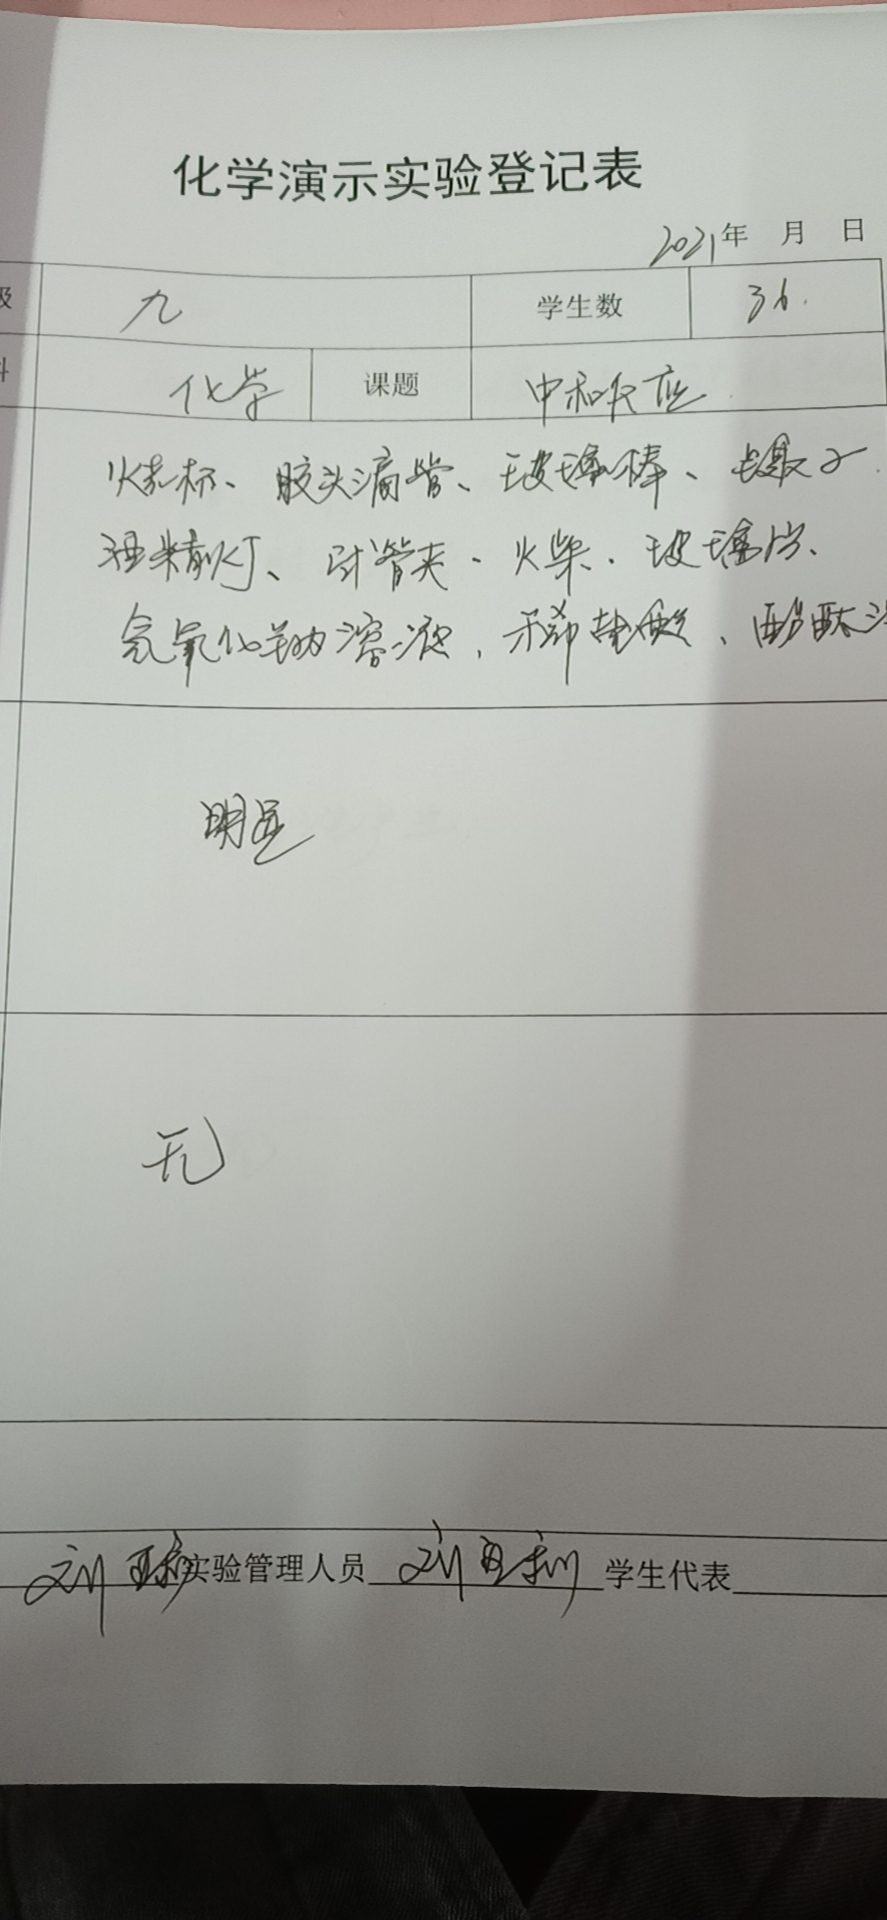 化学演示实验登记表
2021年 月 日
级 九 学生数 36.
科 化学 课题 中和反应
烧杯、胶头滴管、玻璃棒、镊子
酒精灯、试管夹、火柴、玻璃片、
氢氧化钠溶液、稀盐酸、酚酞
明显
无
实验管理人员 学生代表